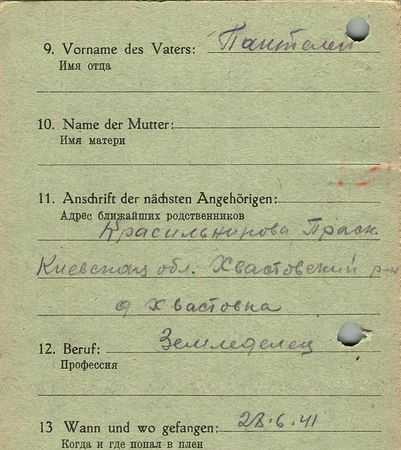 9. Vorname des Vaters: Пантелей
Имя отца
10. Name der Mutter:
Имя матери
11. Anschrift der nächsten Angehörigen:
Адрес ближайших родственников
Красильникова Праск.
Киевская обл. Хвастовский р-н
д Хвастовка
12. Beruf: Земледелец
Профессия
13 Wann und wo gefangen: 28.6.41
Когда и где попал в плен